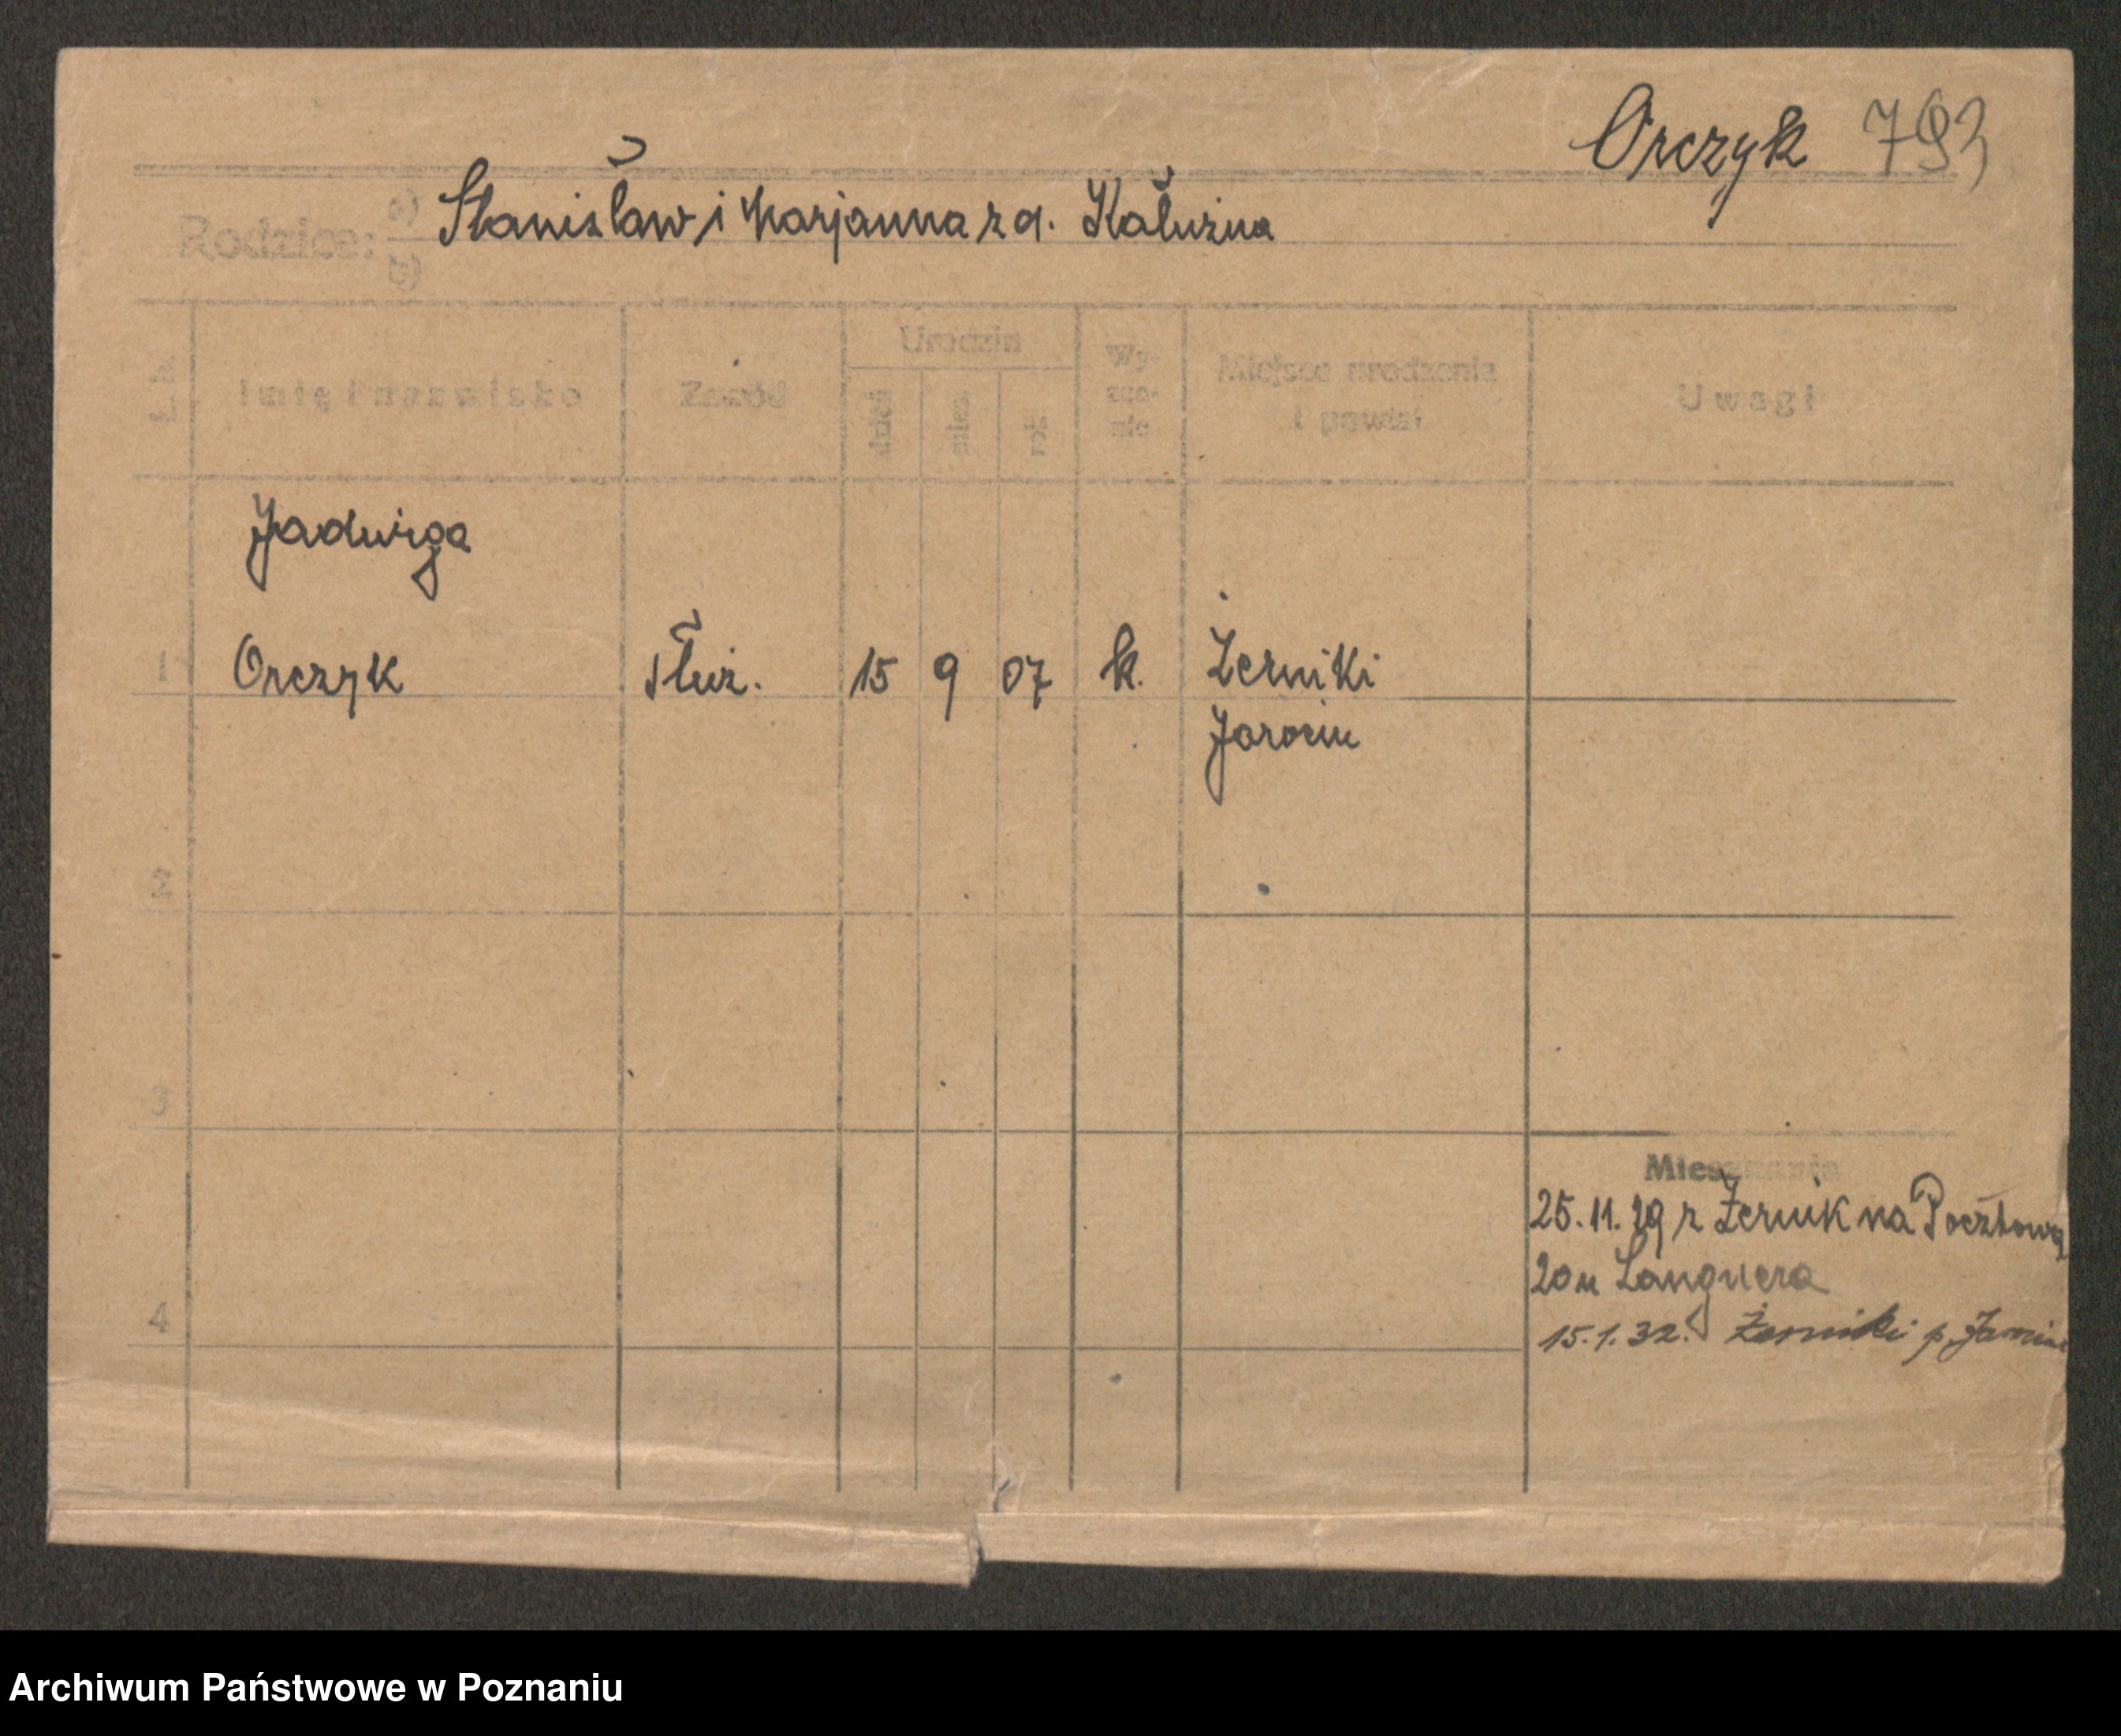 Orczyk 793
Rodzice: a) b) Stanisław i Marjanna z d. Kałużna
L. b.
Imię i nazwisko
Zawód
Urodzin
dzień
mies.
rok
Wy-
zna-
nie
Miejsce urodzenia
i powiat
Uwagi
Jadwiga
1 Orczyk służ. 15 9 07 k. Żerniki
Jarocin
2
3
Mieszkanie
25.11.29 z Żernik na Pocztową
20 u Langnera
4
15.1.32. Żerniki p.
Archiwum Państwowe w Poznaniu